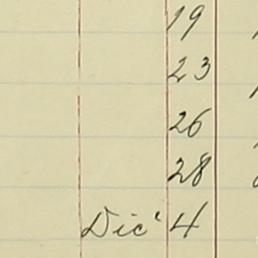 19
23
26
28
Dic' 4